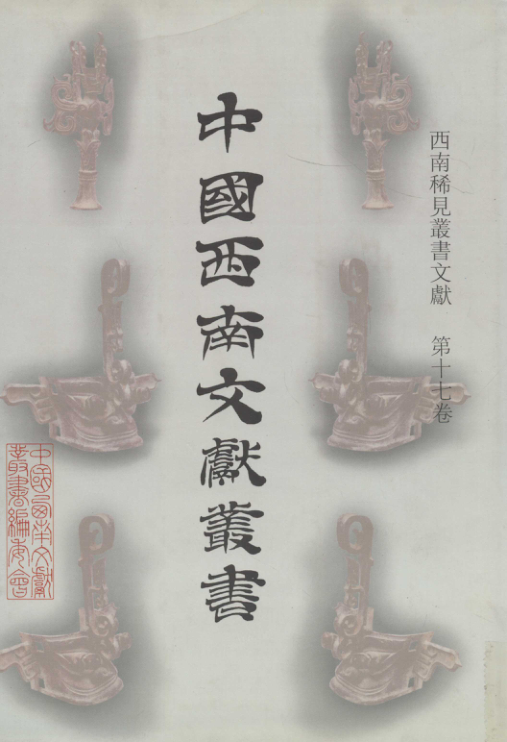 西南稀見叢書文獻 第十七卷
中國西南文獻叢書
中國西南文獻
叢書編委會